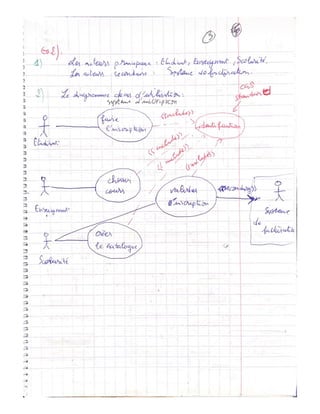 Ex 2).
1) Les acteurs principaux : Etudiant, Enseignant, Scolarité.
Les acteurs secondaires : Système de facturation.
2) Le diagramme de cas d'utilisation :
système d'inscription
faire
l'inscription
<<include>>
identification
Etudiant
<<include>>
<<include>>
<<include>>
choisir
cours
valider
l'inscription
<<secondary>>
Enseignant
Système
de
facturation
créer
le catalogue
Scolarité